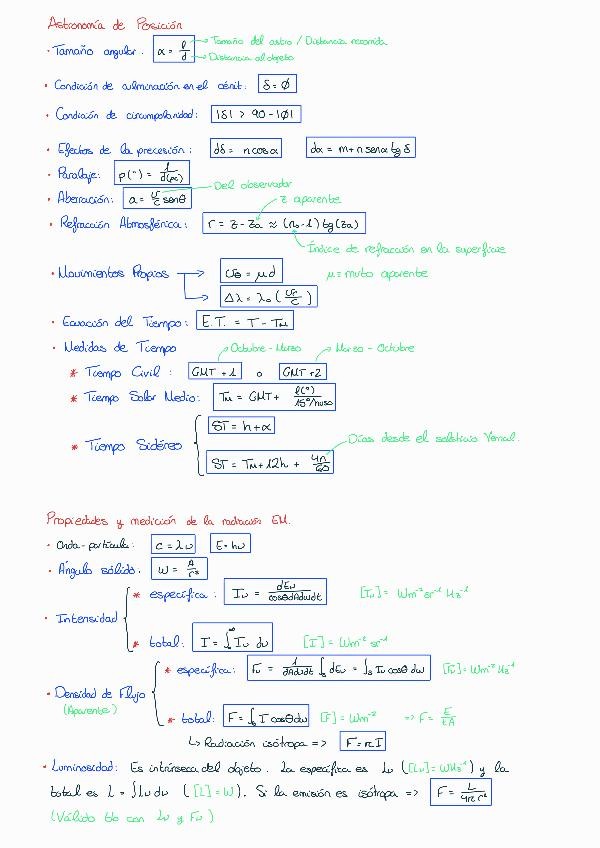 Astronomía de Posición
· Tamaño angular: α = l/d → Tamaño del astro / Distancia recorrida
→ Distancia al objeto
· Condición de culminación en el cénit: δ = ϕ
· Condición de circumpolaridad: |δ| > 90 - |ϕ|
· Efectos de la precesión: dδ = n cosα dα = m + n senα tg δ
· Paralaje: p(") = 1/d(pc)
· Aberración: a = v/c senθ Del observador
· Refracción Atmosférica: r = z - za ≈ (n₀-1) tg(za) z aparente
Índice de refracción en la superficie
· Movimientos Propios → vθ = μd μ = mvto aparente
→ Δλ = λ₀ (vr/c)
· Ecuación del Tiempo: E.T. = T - TM
· Medidas de Tiempo Octubre - Marzo Marzo - Octubre
* Tiempo Civil: GMT + 1 o GMT + 2
* Tiempo Solar Medio: TM = GMT + l(°)/15°/huso
* Tiempo Sidéreo ST = h + α
ST = TM + 12h + 4n/60 Días desde el solsticio Vernal.
Propiedades y medición de la radiación EM.
· Onda-partícula: c = λν E = hν
· Ángulo sólido: ω = A/r²
· Intensidad * específica: Iν = dEν/cosθdAdωdνdt [Iν] = Wm⁻² sr⁻¹ Hz⁻¹
* total: I = ∫₀^∞ Iν dν [I] = Wm⁻² sr⁻¹
· Densidad de Flujo (Aparente) * específica: Fν = 1/dAdνdt ∫s dEν = ∫s Iν cosθ dω [Fν] = Wm⁻² Hz⁻¹
* total: F = ∫s I cosθdω [F] = Wm⁻² => F = E/tA
↳ Radiación isótropa => F = πI
· Luminosidad: Es intrínseca del objeto. La específica es Lν ([Lν] = WHz⁻¹) y la
total es L = ∫Lν dν ([L] = W). Si la emisión es isótropa => F = L/4πr²
(Válido tb con Lν y Fν)